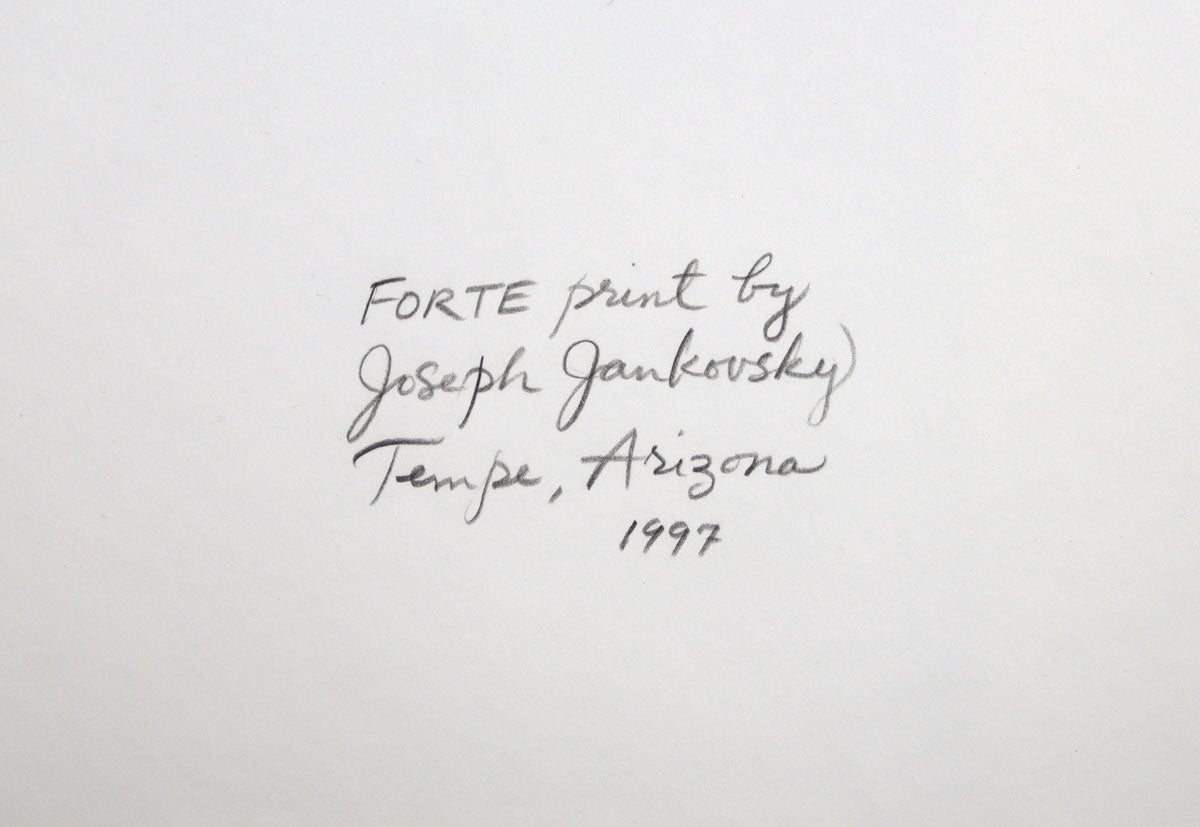 FORTE print by
Joseph Jankovsky
Tempe, Arizona
1997